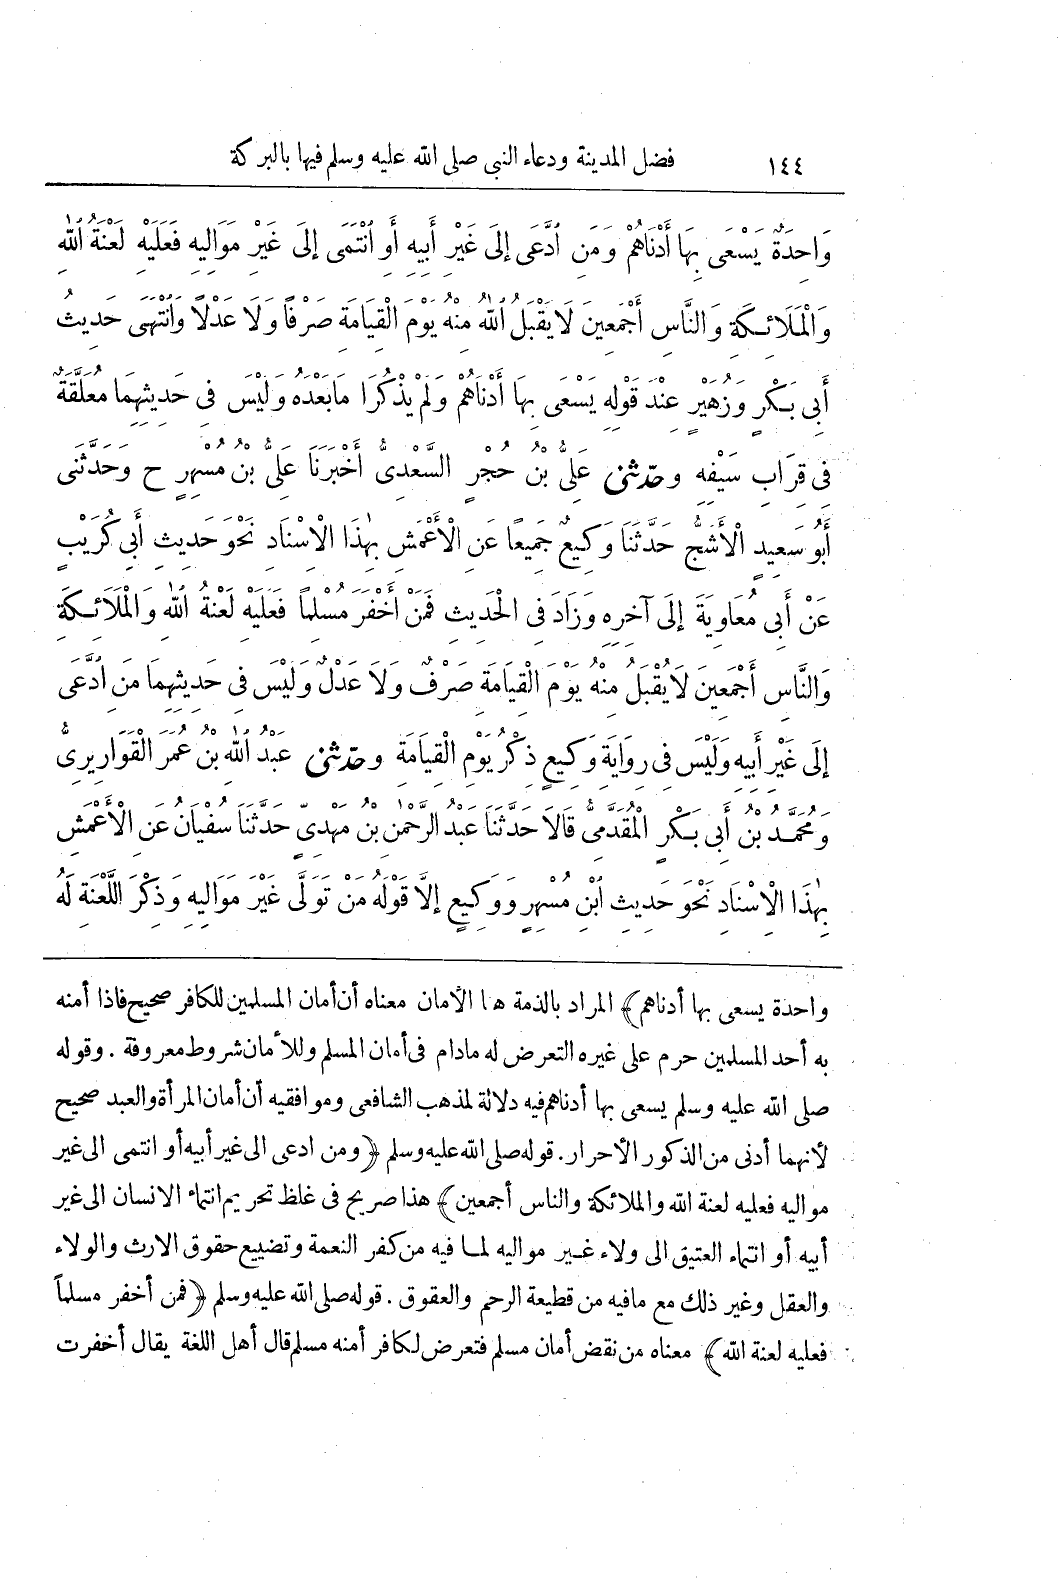 ١٤٤ فضل المدينة ودعاء النبى صلى الله عليه وسلم فيها بالبركة
وَاحِدَةٌ يَسْعَى بِهَا أَدْنَاهُمْ وَمَنِ ادَّعَى إِلَى غَيْرِ أَبِيهِ أَوِ انْتَمَى إِلَى غَيْرِ مَوَالِيهِ فَعَلَيْهِ لَعْنَةُ اللهِ
وَالْمَلَائِكَةِ وَالنَّاسِ أَجْمَعِينَ لَا يَقْبَلُ اللهُ مِنْهُ يَوْمَ الْقِيَامَةِ صَرْفًا وَلَا عَدْلًا وَانْتَهَى حَدِيثُ
أَبِى بَكْرٍ وَزُهَيْرٍ عِنْدَ قَوْلِهِ يَسْعَى بِهَا أَدْنَاهُمْ وَلَمْ يَذْكُرَا مَابَعْدَهُ وَلَيْسَ فِى حَدِيثِهِمَا مُعَلَّقَةٌ
فِى قِرَابِ سَيْفِهِ وحدّثنى عَلِىُّ بْنُ حُجْرٍ السَّعْدِىُّ أَخْبَرَنَا عَلِىُّ بْنُ مُسْهِرٍ ح وَحَدَّثَنِى
أَبُو سَعِيدٍ الْأَشَجُّ حَدَّثَنَا وَكِيعٌ جَمِيعًا عَنِ الْأَعْمَشِ بِهَذَا الْإِسْنَادِ نَحْوَ حَدِيثِ أَبِى كُرَيْبٍ
عَنْ أَبِى مُعَاوِيَةَ إِلَى آخِرِهِ وَزَادَ فِى الْحَدِيثِ فَمَنْ أَخْفَرَ مُسْلِمًا فَعَلَيْهِ لَعْنَةُ اللهِ وَالْمَلَائِكَةِ
وَالنَّاسِ أَجْمَعِينَ لَا يُقْبَلُ مِنْهُ يَوْمَ الْقِيَامَةِ صَرْفٌ وَلَا عَدْلٌ وَلَيْسَ فِى حَدِيثِهِمَا مَنِ ادَّعَى
إِلَى غَيْرِ أَبِيهِ وَلَيْسَ فِى رِوَايَةِ وَكِيعٍ ذِكْرُ يَوْمِ الْقِيَامَةِ وحدّثنى عَبْدُ اللهِ بْنُ عُمَرَ الْقَوَارِيرِىُّ
وَمُحَمَّدُ بْنُ أَبِى بَكْرٍ الْمُقَدَّمِىُّ قَالَا حَدَّثَنَا عَبْدُ الرَّحْمٰنِ بْنُ مَهْدِىٍّ حَدَّثَنَا سُفْيَانُ عَنِ الْأَعْمَشِ
بِهٰذَا الْإِسْنَادِ نَحْوَ حَدِيثِ ابْنِ مُسْهِرٍ وَوَكِيعٍ إِلَّا قَوْلَهُ مَنْ تَوَلَّى غَيْرَ مَوَالِيهِ وَذِكْرَ اللَّعْنَةِ لَهُ
واحدة يسعى بها أدناهم﴾ المراد بالذمة هنا الأمان معناه أن أمان المسلمين للكافر صحيح فاذا أمنه
به أحد المسلمين حرم على غيره التعرض له مادام فى أمان المسلم وللأمان شروط معروفة . وقوله
صلى الله عليه وسلم يسعى بها أدناهم فيه دلالة لمذهب الشافعى وموافقيه أن أمان المرأة والعبد صحيح
لأنهما أدنى من الذكور الأحرار. قوله صلى الله عليه وسلم ﴿ومن ادعى الى غير أبيه أو انتمى الى غير
مواليه فعليه لعنة الله والملائكة والناس أجمعين﴾ هذا صريح فى غلظ تحريم انتماء الانسان الى غير
أبيه أو انتماء العتيق الى ولاء غير مواليه لما فيه من كفر النعمة وتضييع حقوق الارث والولاء
والعقل وغير ذلك مع مافيه من قطيعة الرحم والعقوق . قوله صلى الله عليه وسلم ﴿فمن أخفر مسلماً
فعليه لعنة الله﴾ معناه من نقض أمان مسلم فتعرض لكافر أمنه مسلم قال أهل اللغة يقال أخفرت